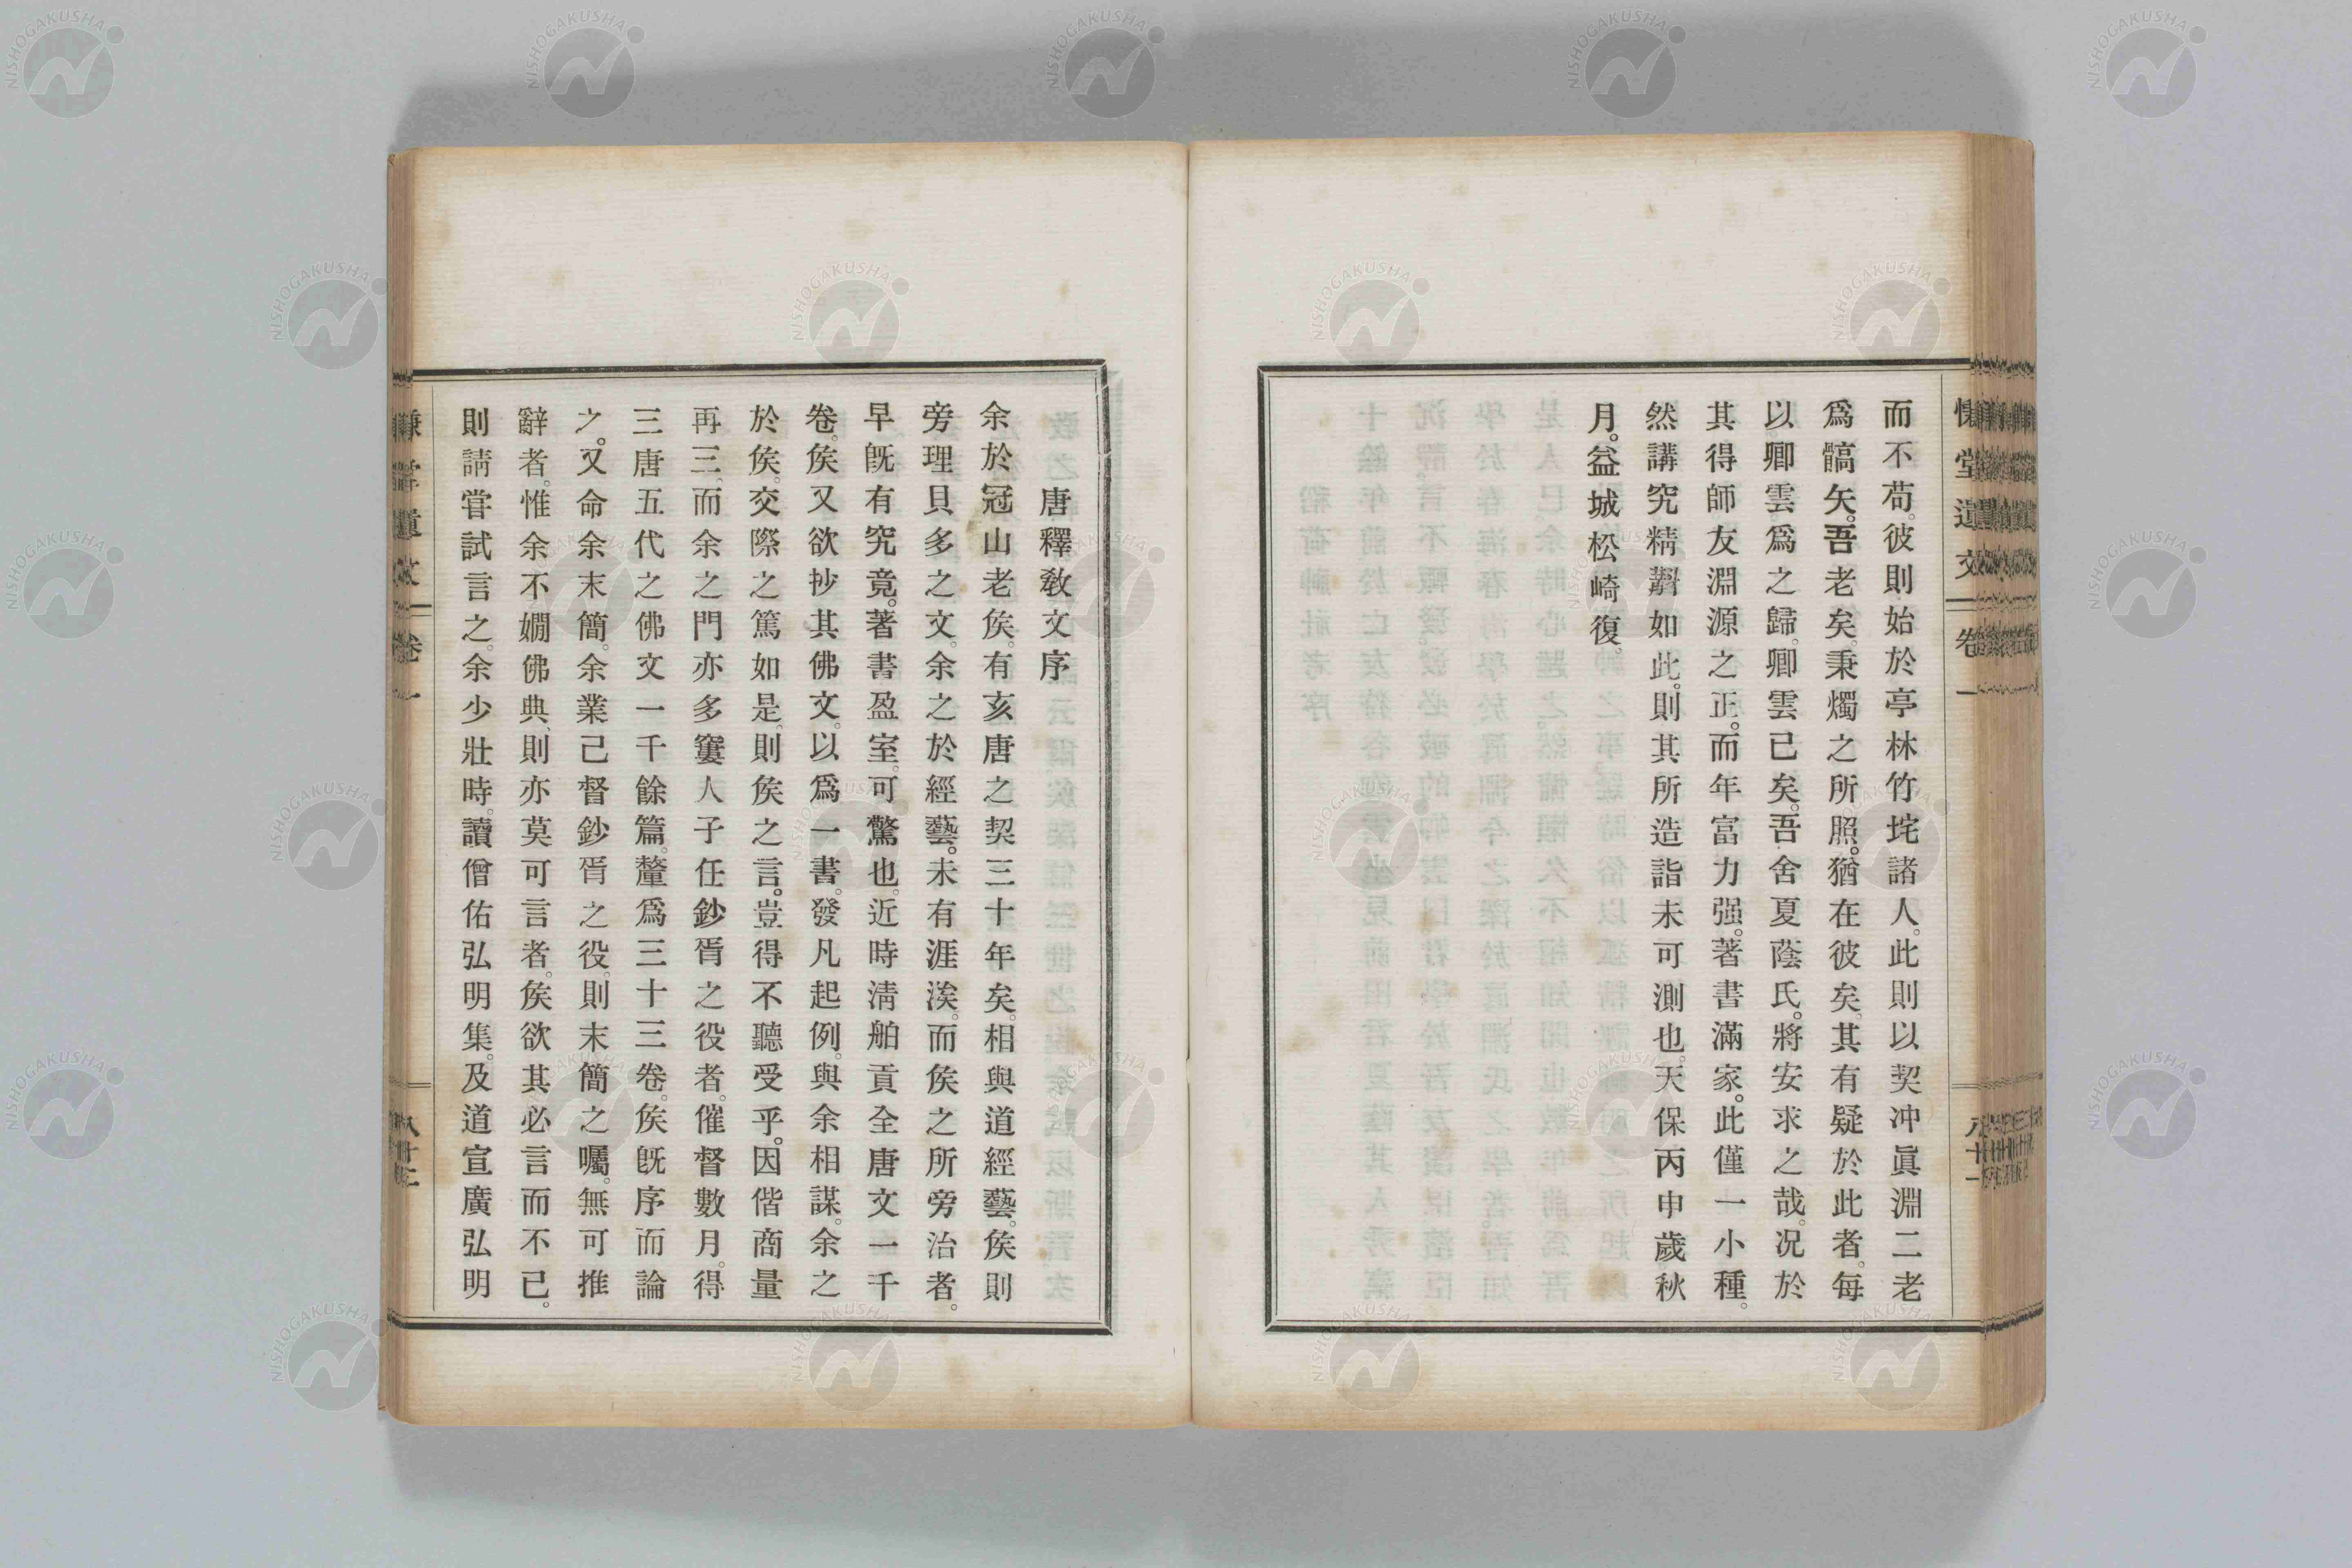 慊堂遺文 卷一
而不苟。彼則始於亭林竹垞諸人。此則以契冲眞淵二老
爲髇矢。吾老矣。秉燭之所照。猶在彼矣。其有疑於此者。每
以卿雲爲之歸。卿雲已矣。吾舍夏蔭氏。將安求之哉。况於
其得師友淵源之正。而年富力强。著書滿家。此僅一小種。
然講究精覈如此。則其所造詣未可測也。天保丙申歲秋
月。益城松崎復。
唐釋敎文序
余於冠山老矦。有亥唐之契三十年矣。相與道經藝。矦則
旁理貝多之文。余之於經藝。未有涯涘。而矦之所旁治者。
早既有究竟。著書盈室。可驚也。近時淸舶貢全唐文一千
卷。矦又欲抄其佛文。以爲一書。發凡起例。與余相謀。余之
於矦。交際之篤如是。則矦之言。豈得不聽受乎。因偕商量
再三。而余之門亦多窶人子任鈔胥之役者。催督數月。得
三唐五代之佛文一千餘篇。釐爲三十三卷。矦旣序而論
之。又命余末簡。余業已督鈔胥之役。則末簡之囑。無可推
辭者。惟余不嫺佛典、則亦莫可言者。矦欲其必言而不已。
則請嘗試言之。余少壯時。讀僧佑弘明集。及道宣廣弘明
慊堂遺文 卷一
NISHOGAKUSHA